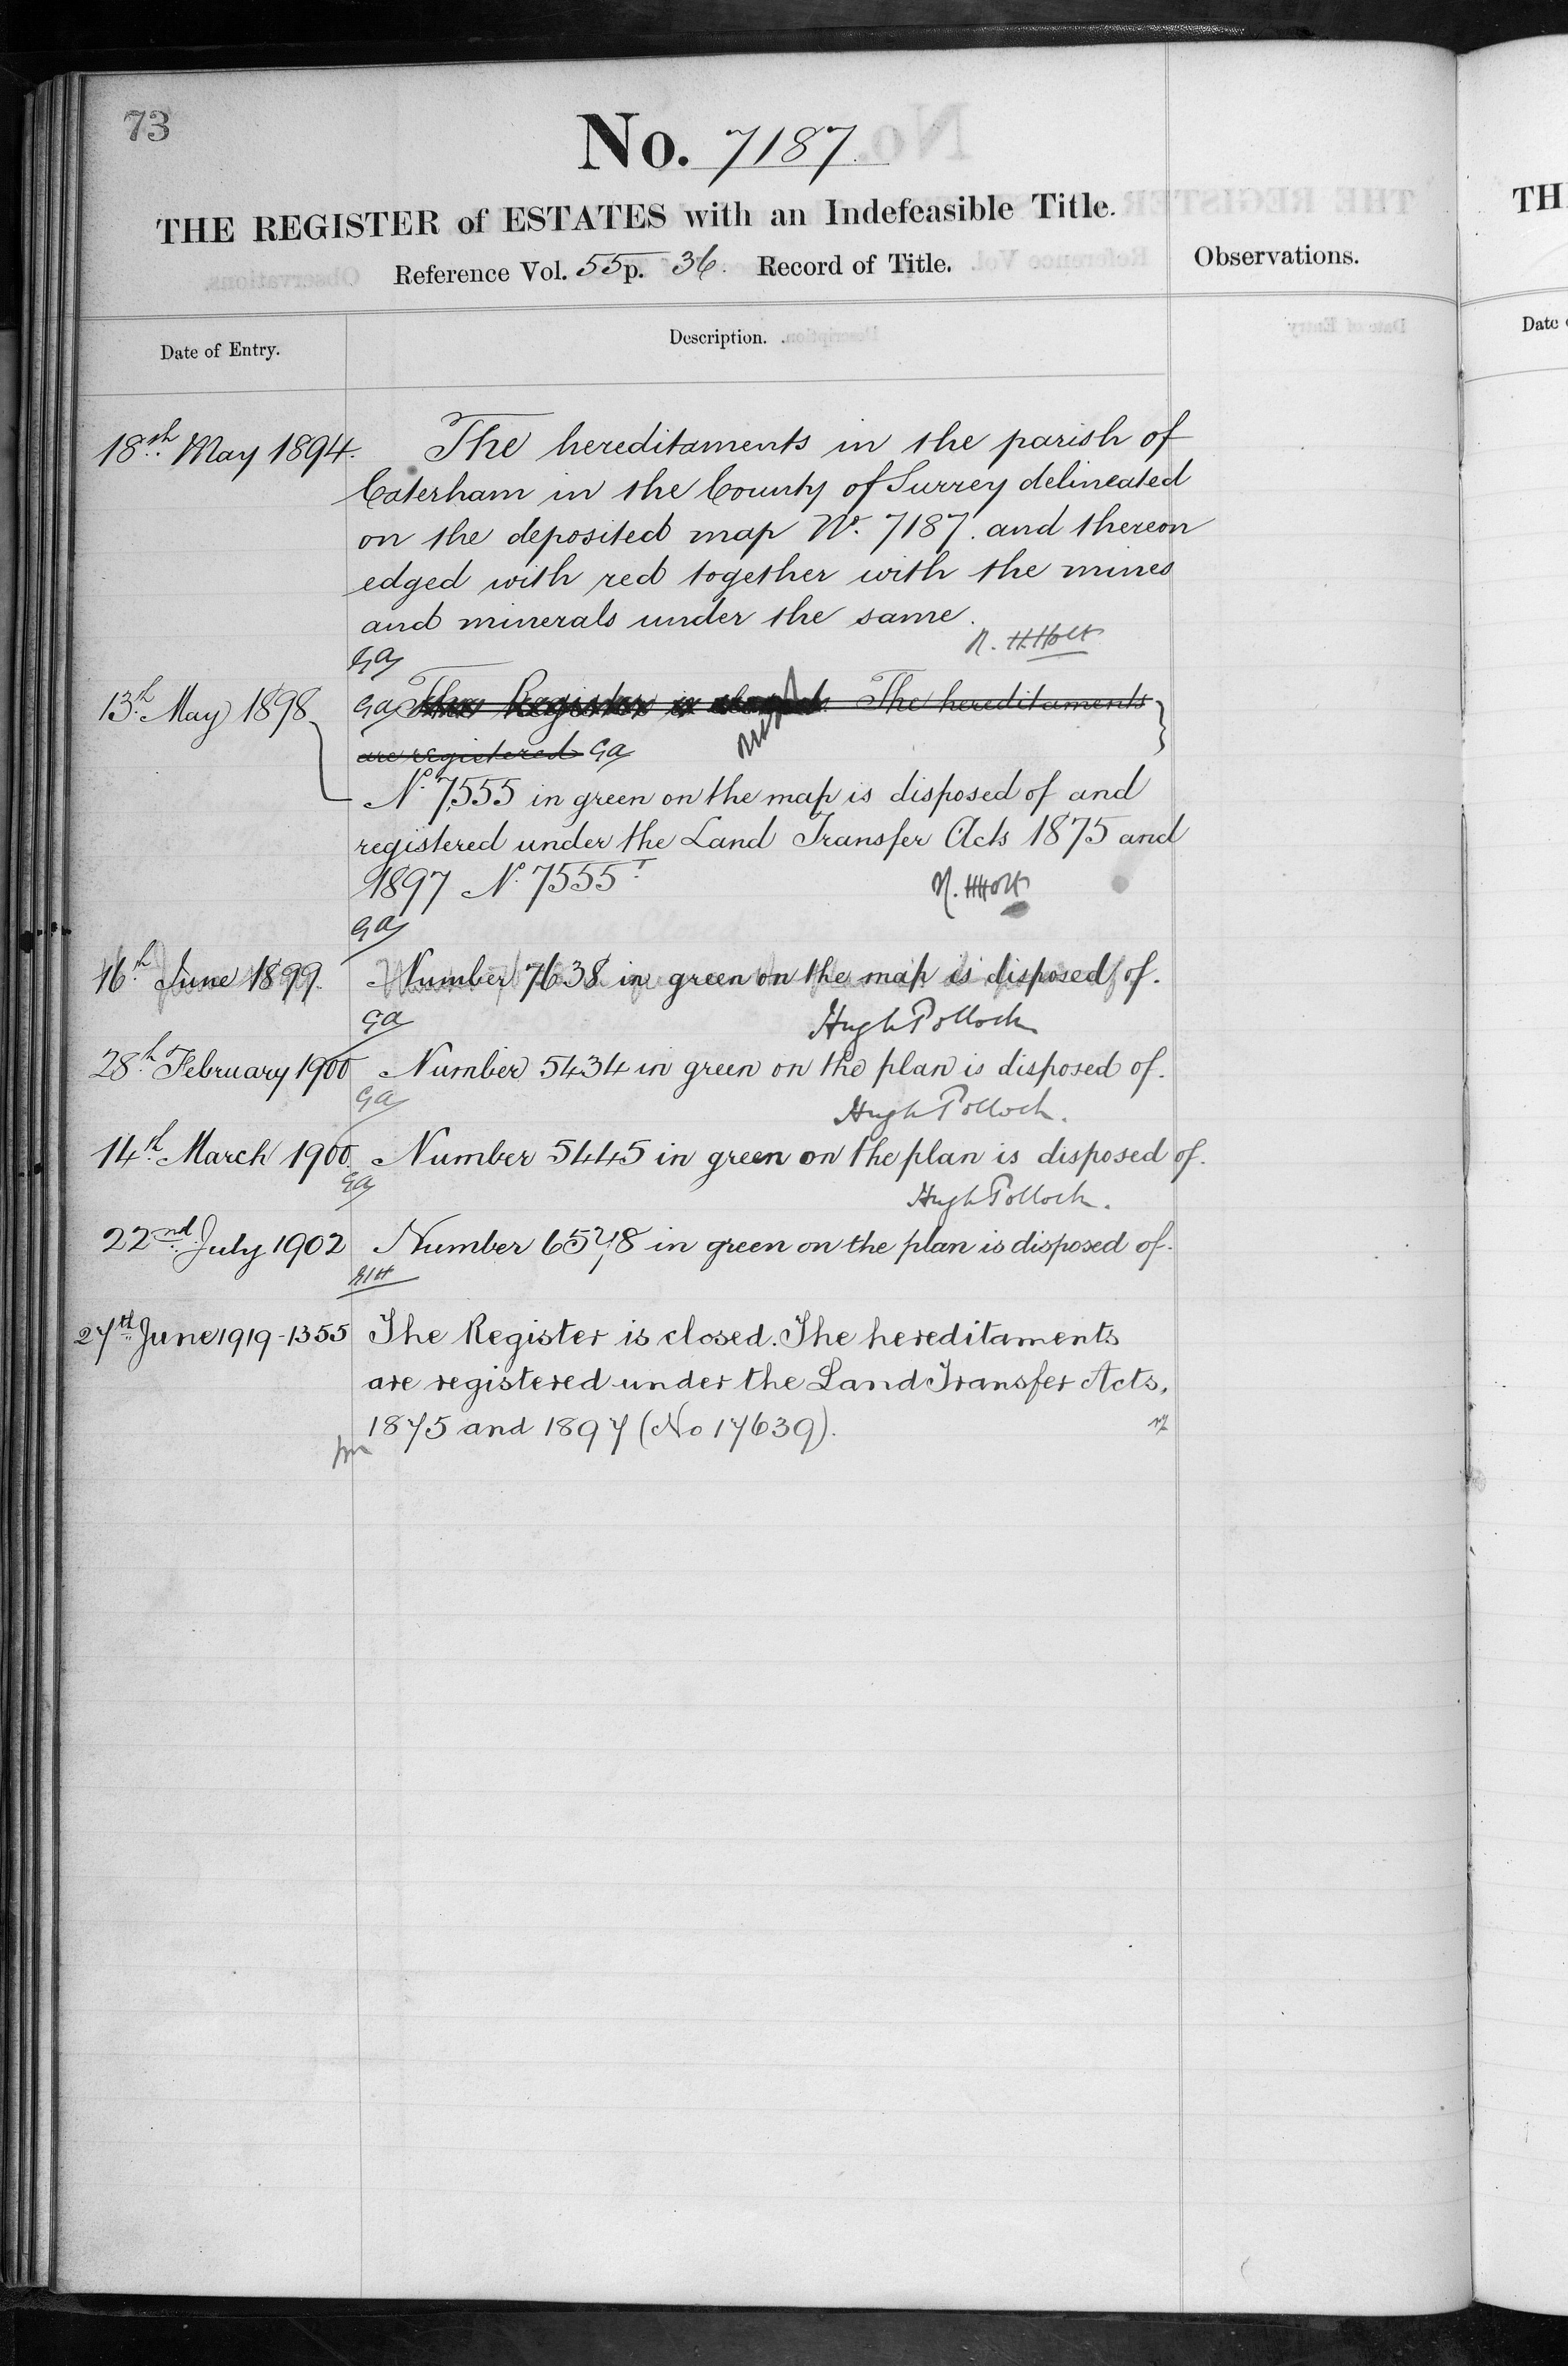 73
No. 7187.
THE REGISTER of ESTATES with an Indefeasible Title.
Reference Vol. 55 p. 36. Record of Title.
Observations.
Date of Entry.
Description.
18th May 1894.
The hereditaments in the parish of
Caterham in the County of Surrey delineated
on the deposited map No. 7187. and thereon
edged with red together with the mines
and minerals under the same.
R. H. Holt
GA
13th May 1898
GA This Register is closed. The hereditaments
are registered GA
No. 7555 in green on the map is disposed of and
registered under the Land Transfer Acts 1875 and
1897 No. 7555T.
R. H. Holt
GA
16th June 1899.
Number 7638 in green on the map is disposed of.
GA
Hugh Pollock
28th February 1900
Number 5434 in green on the plan is disposed of.
GA
Hugh Pollock.
14th March 1900.
Number 5445 in green on the plan is disposed of.
GA
Hugh Pollock.
22nd July 1902
Number 6578 in green on the plan is disposed of.
27th June 1919-1355
The Register is closed. The hereditaments
are registered under the Land Transfer Acts,
1875 and 1897 (No 17639).
TH
Date